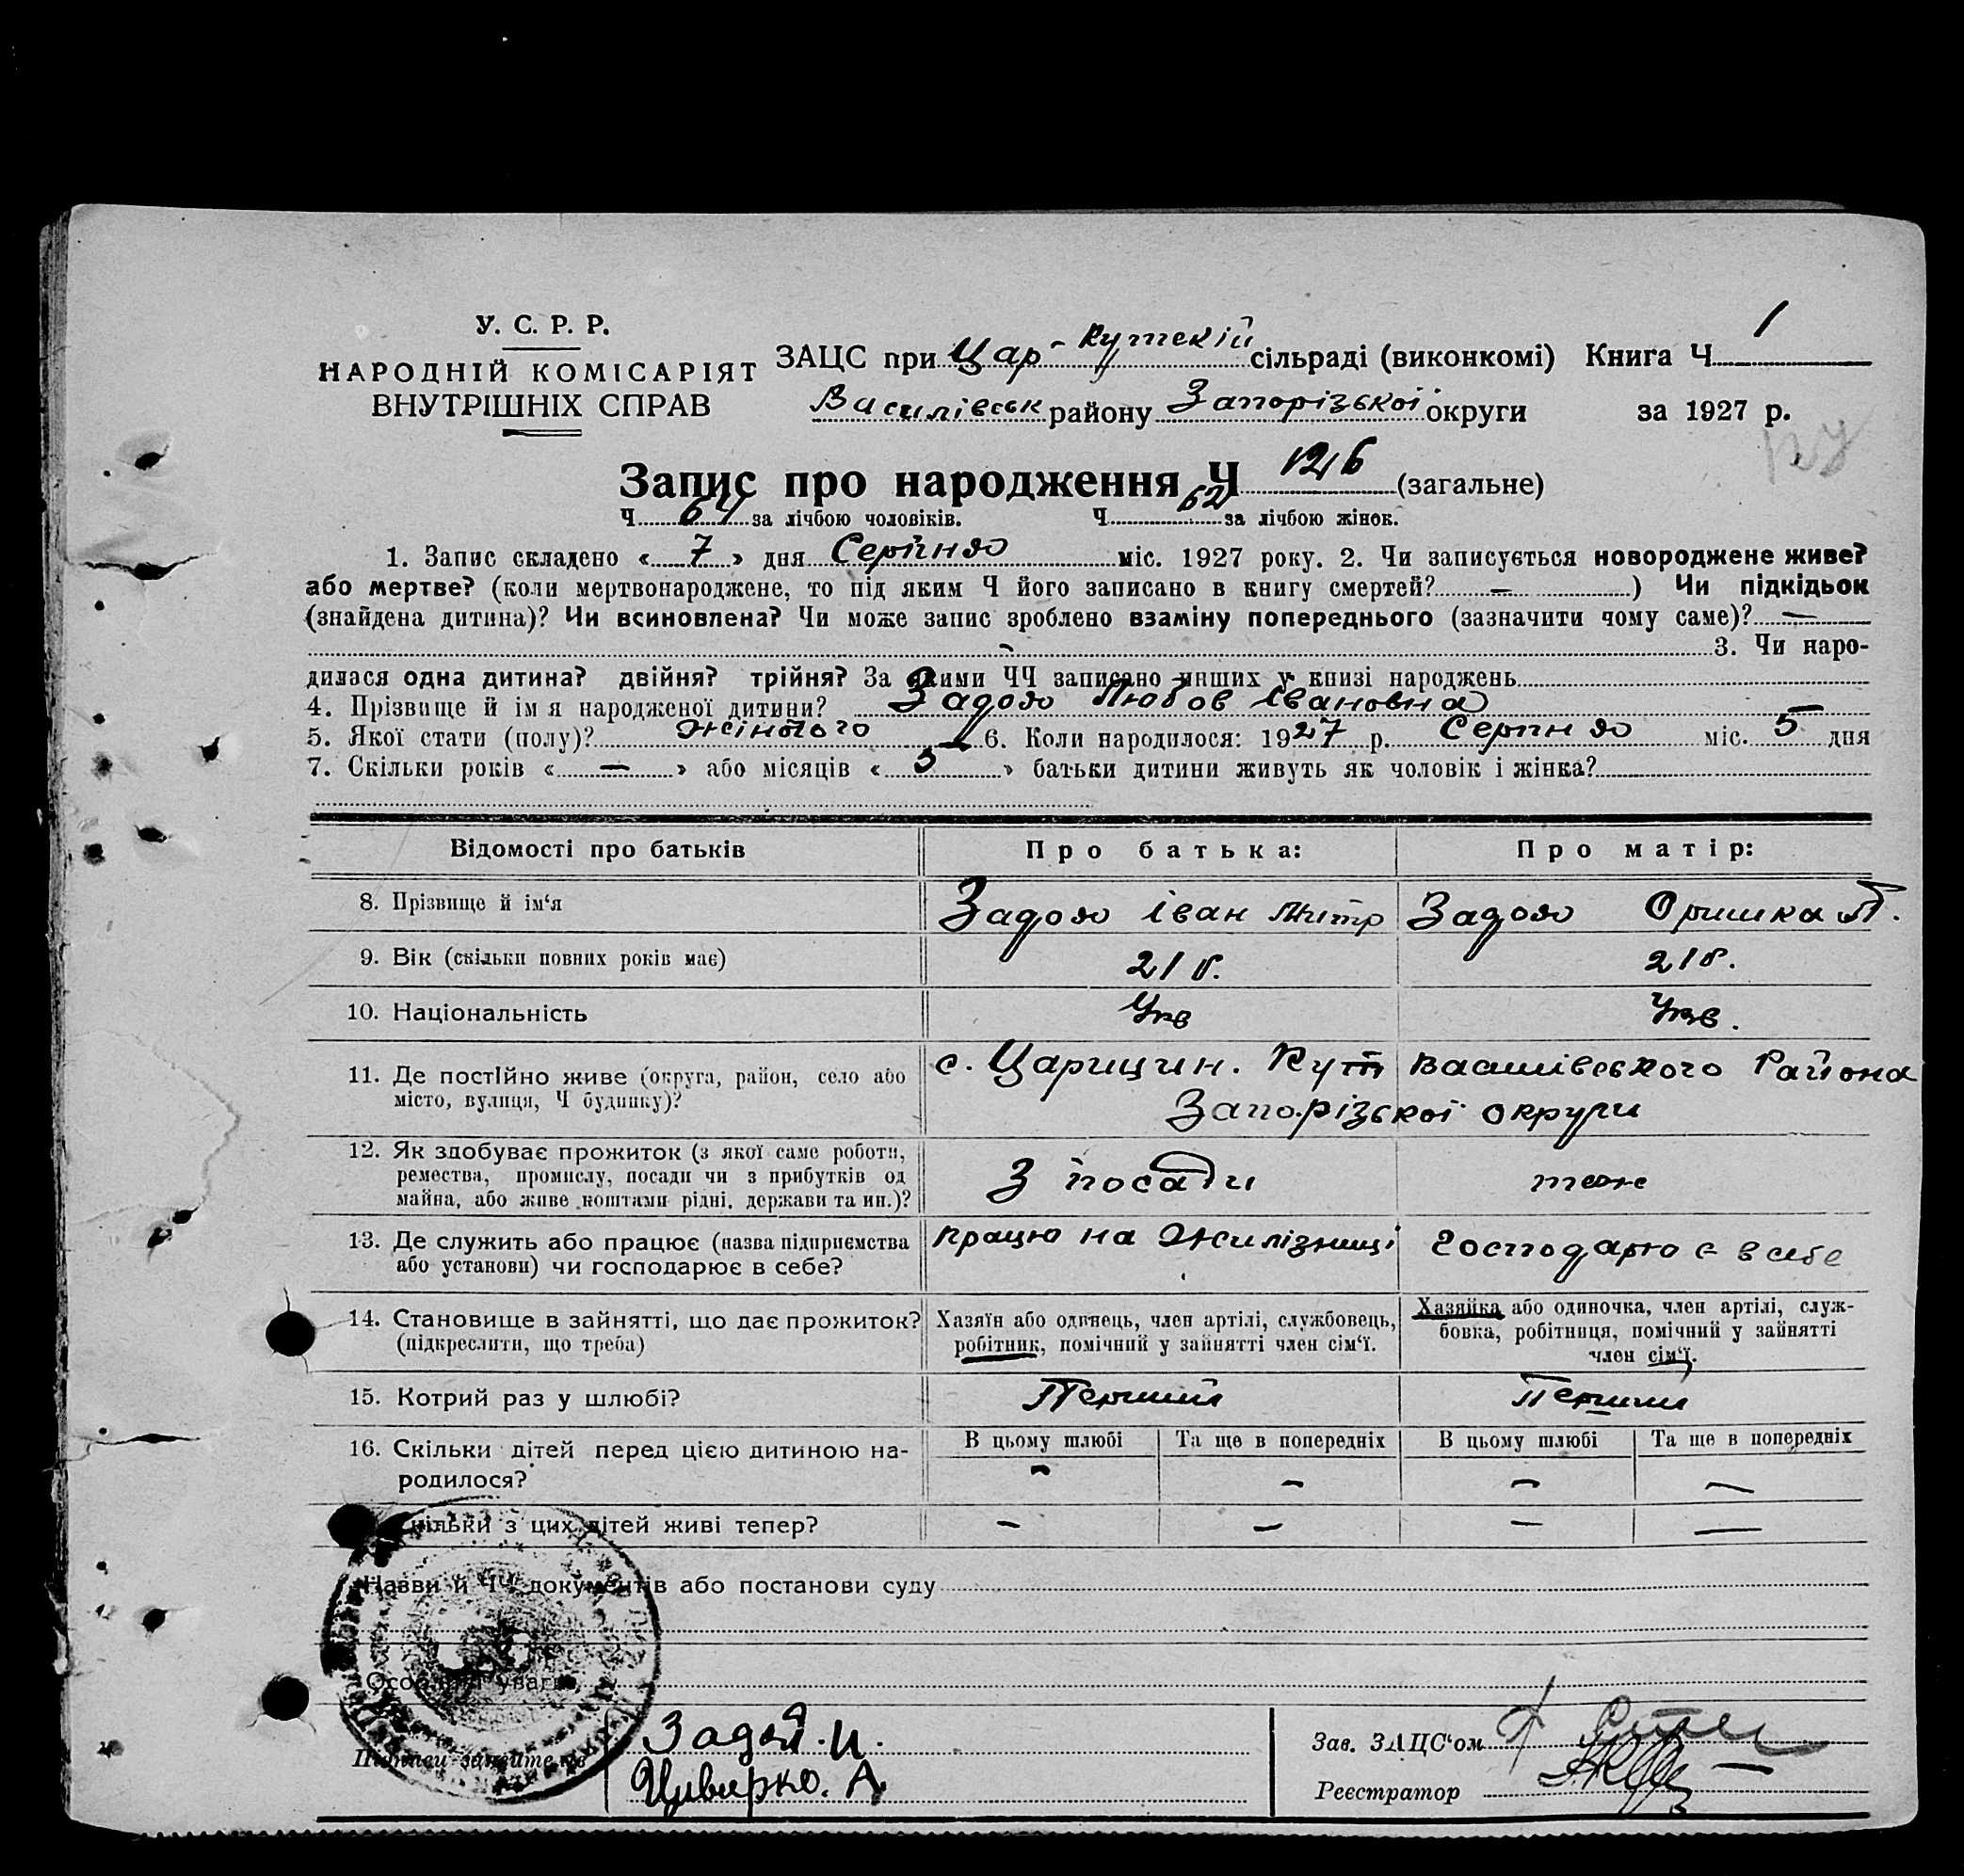 У. С. Р. Р.
НАРОДНІЙ КОМІСАРІЯТ
ВНУТРІШНІХ СПРАВ
ЗАЦС при Цар-Кутскій сільраді (виконкомі) Книга Ч 1
Василівськ району Запорізької округи за 1927 р.
Запис про народження Ч 126 (загальне)
Ч 64 за лічбою чоловіків. Ч 62 за лічбою жінок.
1. Запис складено « 7 » дня Серпня міс. 1927 року. 2. Чи записується новороджене живе?
або мертве? (коли мертвонароджене, то під яким Ч його записано в книгу смертей? — ) Чи підкідьок
(знайдена дитина)? Чи всиновлена? Чи може запис зроблено взаміну попереднього (зазначити чому саме)? —
3. Чи наро-
дилася одна дитина? двійня? трійня? За якими ЧЧ записано инших у книзі народжень
4. Прізвище й імя народженої дитини? Задоя Любов Івановна
5. Якої стати (полу)? жіночого 6. Коли народилося: 1927 р. Серпня міс. 5 дня
7. Скільки років « — » або місяців « 5 » батьки дитини живуть як чоловік і жінка?
Відомості про батьків Про батька: Про матір:
8. Прізвище й ім‘я Задоя Іван Дмитр Задоя Оришка П.
9. Вік (скільки повних років має) 21 р. 21 р.
10. Національність Укр Укр.
11. Де постійно живе (округа, район, село або с. Царицин. Кут Василівського Района
місто, вулиця, Ч будинку)? Запорізької округи
12. Як здобуває прожиток (з якої саме роботи,
ремества, промислу, посади чи з прибутків од З посади теж
майна, або живе коштами рідні, держави та ин.)?
13. Де служить або працює (назва підприємства Працю на Жилізниці Господарює в себе
або установи) чи господарює в себе?
14. Становище в зайнятті, що дає прожиток? Хазяїн або одинець, член артілі, службовець, Хазяйка або одиночка, член артілі, служ-
(підкреслити, що треба) робітник, помічний у зайнятті член сім‘ї. бовка, робітниця, помічний у зайнятті
член сім‘ї.
15. Котрий раз у шлюбі? Перший Перший
16. Скільки дітей перед цією дитиною на- В цьому шлюбі Та ще в попередніх В цьому шлюбі Та ще в попередніх
родилося? — — — —
Скільки з цих дітей живі тепер? — — — —
Назви й ЧЧ документів або постанови суду
Особливі уваги
Підписи заявителів Задой. И. Зав. ЗАЦС‘ом
Цивирко. А. Реєстратор